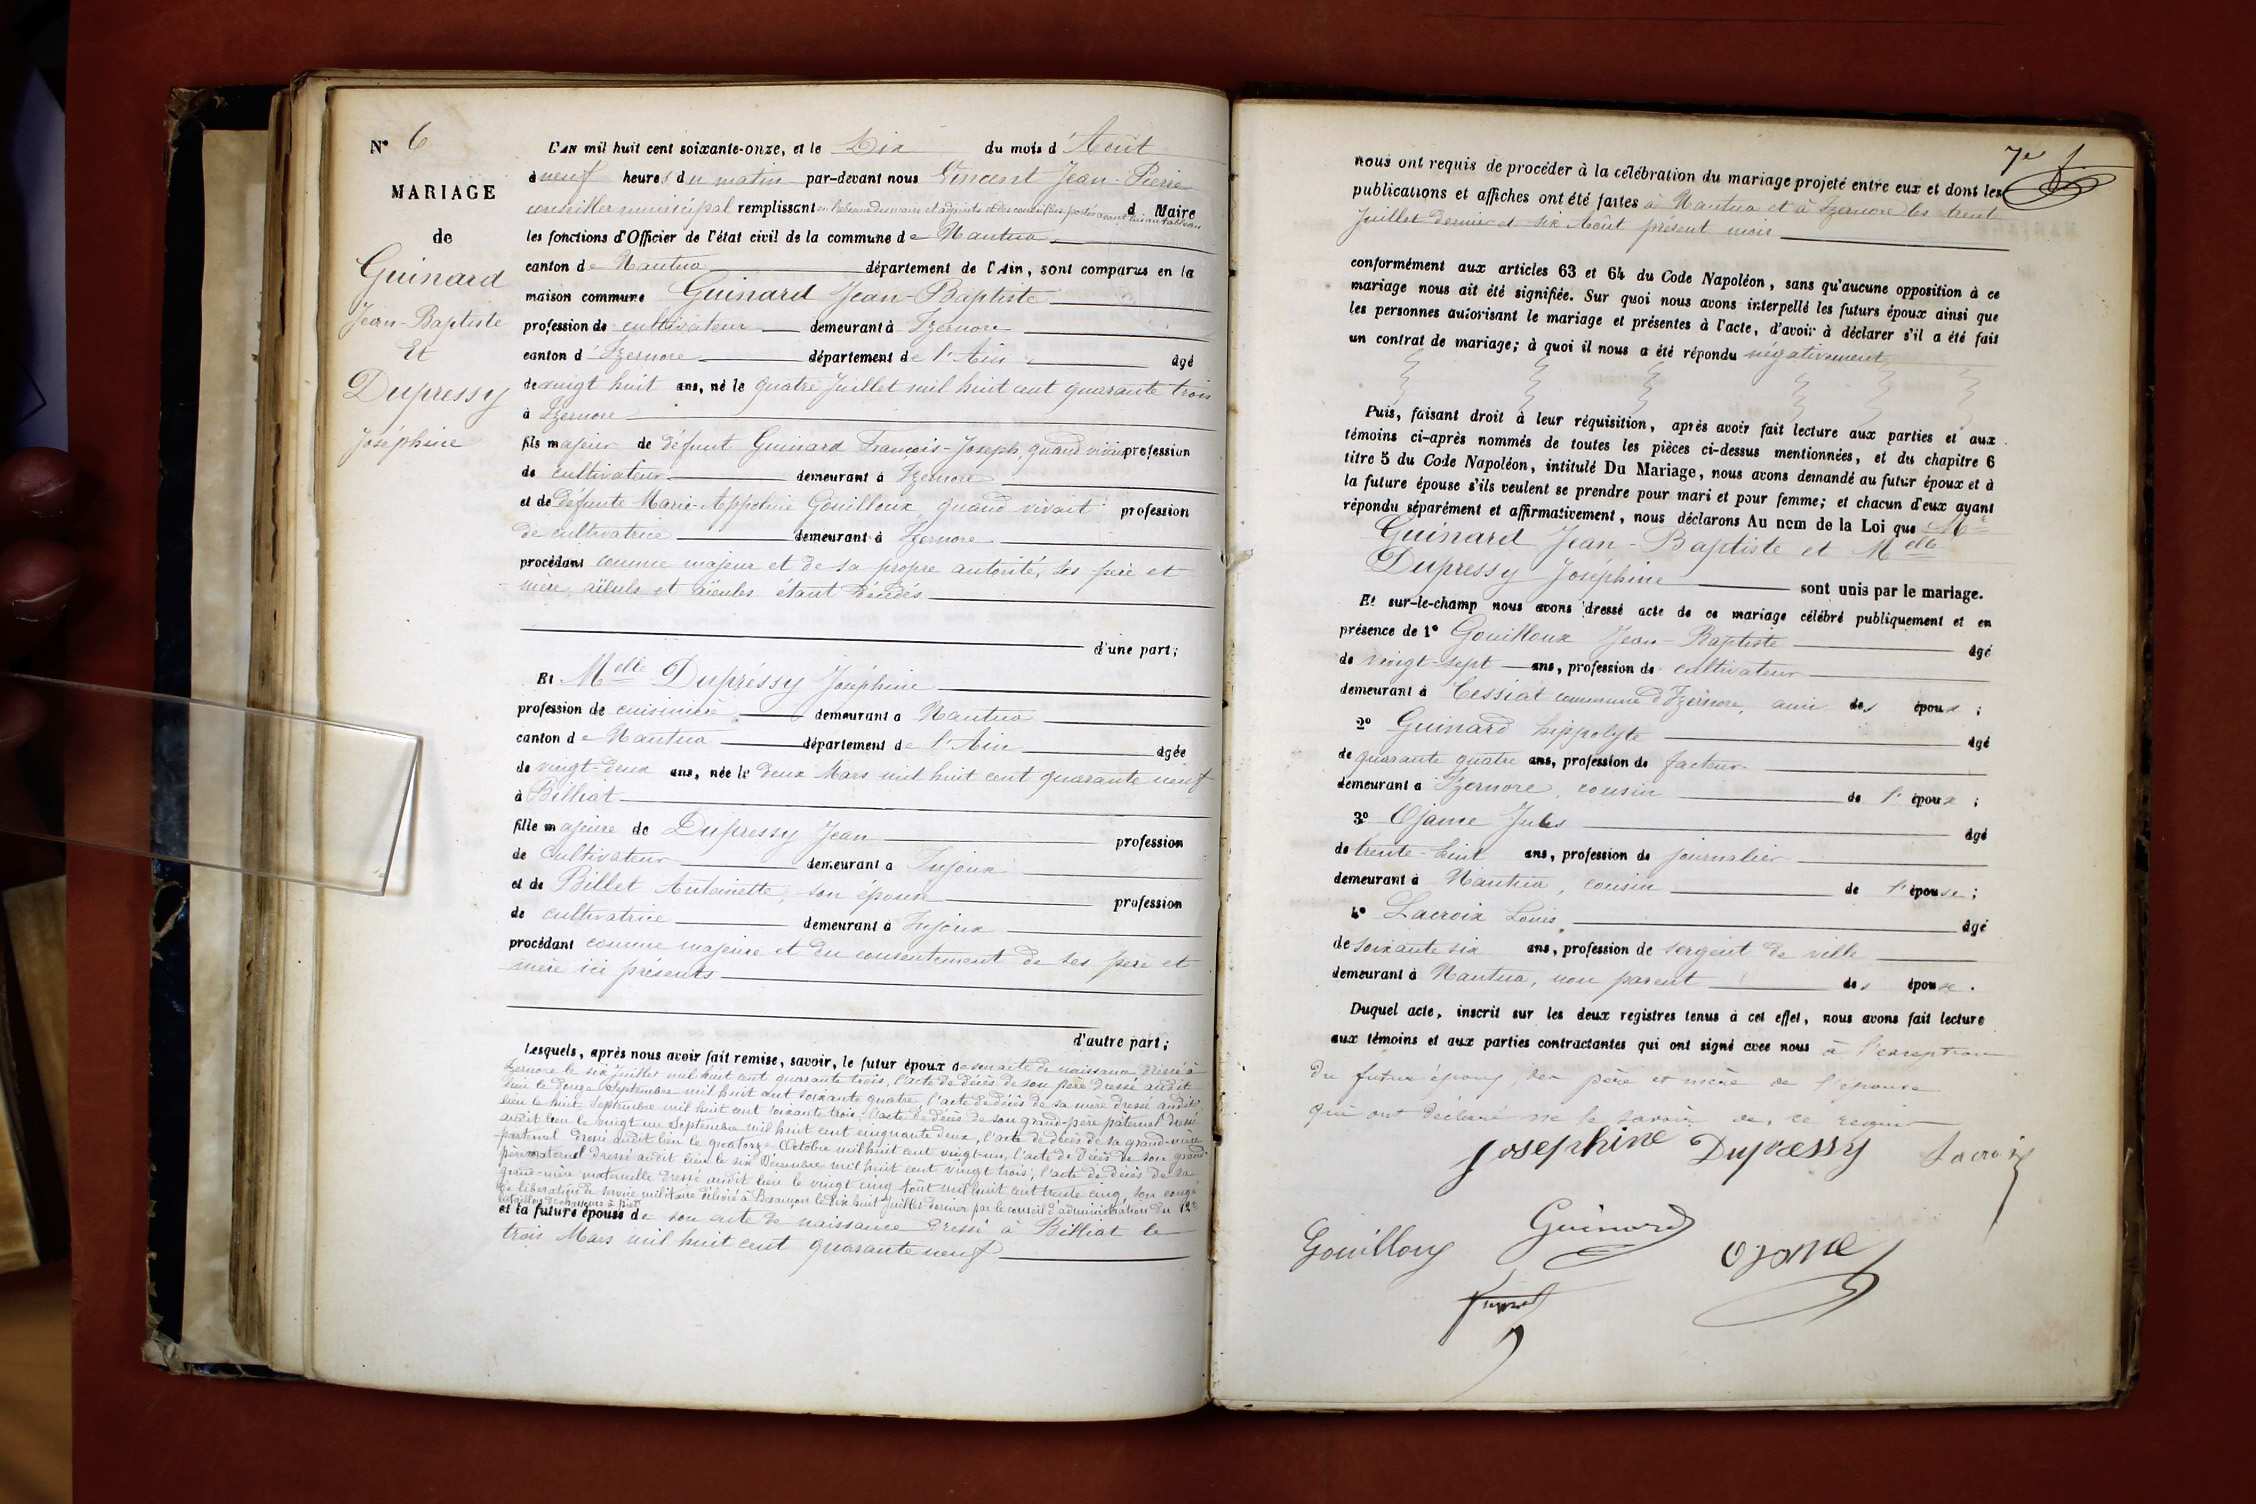 N° 6
MARIAGE
de
Guinard
Jean-Baptiste
Et
Dupressy
Joséphine
L'AN mil huit cent soixante-onze, et le Dix du mois d'Août
à neuf heures du matin par-devant nous Vincent Jean-Pierre
conseiller municipal remplissant en l'absence des maire et adjoints et des conseillers portés avant lui au tableau d Maire
les fonctions d'Officier de l'état civil de la commune de Nantua
canton de Nantua département de l'Ain, sont comparus en la
maison commune Guinard Jean-Baptiste
profession de cultivateur demeurant à Izernore
canton d'Izernore département de l'Ain âgé
de vingt huit ans, né le quatre Juillet mil huit cent quarante trois
à Izernore
fils majeur de défunt Guinard François-Joseph, quand vivait profession
de cultivateur demeurant à Izernore
et de défunte Marie-Appoline Gouilloux, quand vivait profession
de cultivatrice demeurant à Izernore
procédant comme majeur et de sa propre autorité, ses père et
mère, aïeuls et aïeules étant décédés
d'une part;
Et Melle Dupréssy Joséphine
profession de cuisinière demeurant à Nantua
canton de Nantua département de l'Ain âgée
de vingt-deux ans, née le deux Mars mil huit cent quarante neuf
à Billiat
fille majeure de Dupressy Jean profession
de Cultivateur demeurant à Injoux
et de Billet Antoinette, son épouse profession
de cultivatrice demeurant à Injoux
procédant comme majeure et du consentement de ses père et
mère ici présents
d'autre part;
Lesquels, après nous avoir fait remise, savoir, le futur époux de son acte de naissance dressé à
Izernore le six Juillet mil huit cent quarante trois, l'acte de décès de son père dressé audit
lieu le douze Septembre mil huit cent soixante quatre, l'acte de décès de sa mère dressé audit
lieu le huit Septembre mil huit cent soixante trois, l'acte de décès de son grand-père paternel dressé
audit lieu le vingt un Septembre mil huit cent cinquante deux, l'acte de décès de sa grand-mère
paternel dressé audit lieu le quatorze Octobre mil huit cent vingt-un, l'acte de décès de son grand-
père maternel dressé audit lieu le six Décembre mil huit cent vingt trois, l'acte de décès de sa
grand-mère maternelle dressé audit lieu le vingt cinq Août mil huit cent trente cinq, son congé
de libération de service militaire délivré à Besançon le dix huit Juillet dernier par le conseil d'administration du 12e
bataillon de chasseurs à pied
et la future épouse de son acte de naissance dressé à Billiat le
trois Mars mil huit cent quarante neuf
7e
nous ont requis de procéder à la célébration du mariage projeté entre eux et dont les
publications et affiches ont été faites à Nantua et à Izernore les trente
Juillet dernier et six Août présent mois
conformément aux articles 63 et 64 du Code Napoléon, sans qu'aucune opposition à ce
mariage nous ait été signifiée. Sur quoi nous avons interpellé les futurs époux ainsi que
les personnes autorisant le mariage et présentes à l'acte, d'avoir à déclarer s'il a été fait
un contrat de mariage; à quoi il nous a été répondu négativement
Puis, faisant droit à leur réquisition, après avoir fait lecture aux parties et aux
témoins ci-après nommés de toutes les pièces ci-dessus mentionnées, et du chapitre 6
titre 5 du Code Napoléon, intitulé Du Mariage, nous avons demandé au futur époux et à
la future épouse s'ils veulent se prendre pour mari et pour femme; et chacun d'eux ayant
répondu séparément et affirmativement, nous déclarons Au nom de la Loi que Mr
Guinard Jean-Baptiste et Melle
Dupressy Joséphine sont unis par le mariage.
Et sur-le-champ nous avons dressé acte de ce mariage célébré publiquement et en
présence de 1° Gouilloux Jean-Baptiste âgé
de vingt-sept ans, profession de cultivateur
demeurant à Cessiat commune d'Izernore, ami des époux;
2° Guinard hippolyte âgé
de quarante quatre ans, profession de facteur
demeurant à Izernore, cousin de l'époux;
3° Ojame Jules âgé
de trente-huit ans, profession de journalier
demeurant à Nantua, cousin de l'épouse;
4° Lacroix Louis âgé
de soixante six ans, profession de sergent de ville
demeurant à Nantua, non parent des époux.
Duquel acte, inscrit sur les deux registres tenus à cet effet, nous avons fait lecture
aux témoins et aux parties contractantes qui ont signé avec nous à l'exception
du futur époux, des père et mère de l'épouse
qui ont déclaré ne le savoir de ce requis
Josephine Dupressy Lacroix
Gouilloux Guinard Ojame